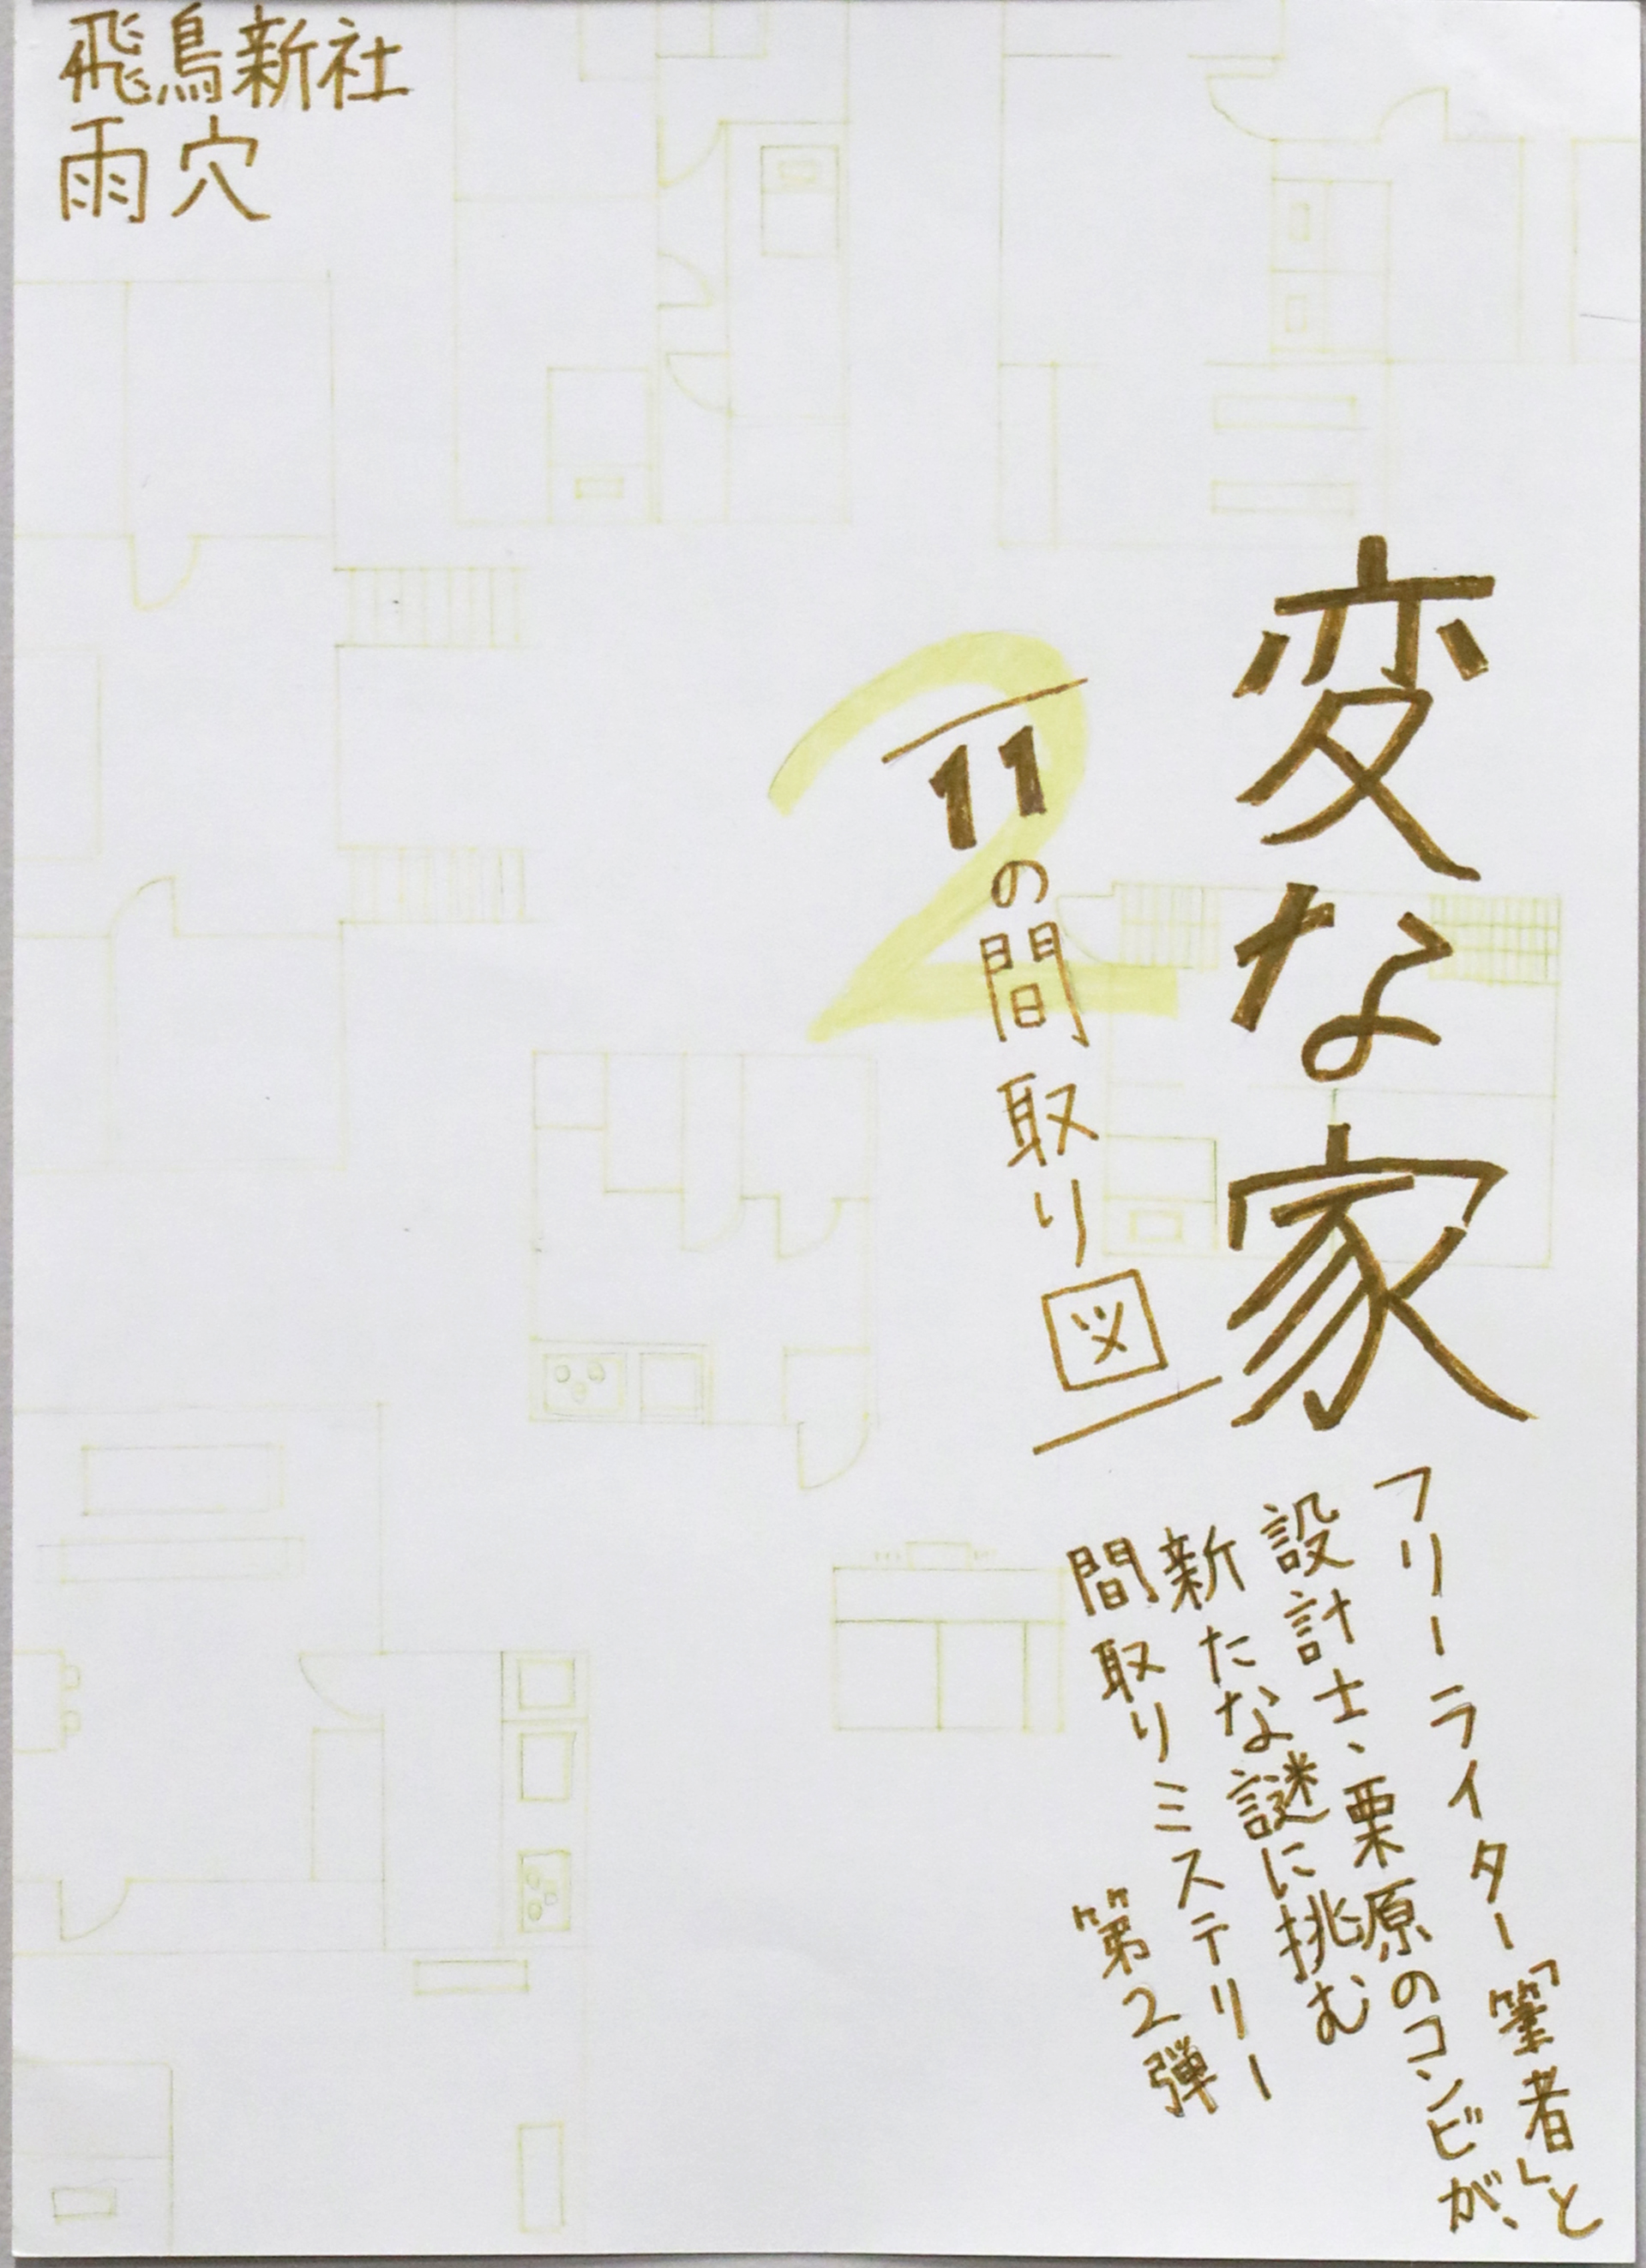 飛鳥新社
雨穴
変な家
2
11の間取り図
フリーライター「筆者」と
設計士、栗原のコンビが、
新たな謎に挑む
間取りミステリー
第2弾